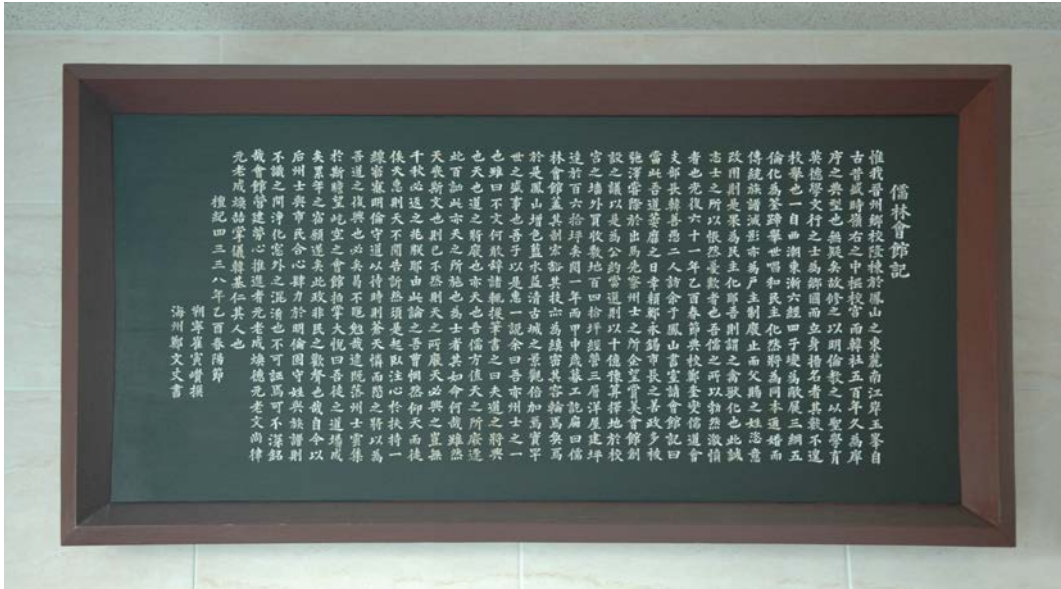 儒林會館記
惟我晋州鄉校陞棟於鳳山之東麓南江岸玉峯自
古昔盛時嶺右之中樞校宮而韓社五百年久為庠
序之典型也無疑矣故修之以明倫教之以聖學育
英德學文行之士為鄉國而立身揚名者其數不遑
枚擧也一自西漸東漸六經四子變為敝屣三綱五
倫化為筌蹄擧世唱和民主化然將為同本通婚而
傳統族譜滅影亦為戶主制度止而父賜之姓恣意
改用則是果為民主化耶吾則謂之禽獸化也此誠
志士之所以恨然憂歎者也吾儒之所以勃然激憤
者也光復六十一年乙酉春節典校鄭奎燮儒道會
支部長韓善愚二人訪余于鳳山書室請會館記曰
當此吾道萎靡之日幸賴鄭永錫市長之善政多被
弛澤嘗際於出馬先察州士之所企望賞美會館創
設之議以是為公約當選則以十億豫算擇地於校
宮之墻外買收敷地百四拾坪經營三層洋屋建坪
達於百六拾坪矣閱一年而甲申歲暮工訖扁曰儒
林會館盖其制宏豁其技亦為緻密其容輪焉奐焉
於是鳳山增色藍水益清古城之景觀倍加焉實罕
世之盛事也吾子以是惠一說余曰吾亦州士之一
也雖曰不文何敢辭諸輒援筆書之曰夫道之將興
也天也道之將廢也亦天也吾儒方值天之所廢遭
此百訕此亦天之所施也為士者其如命何哉雖然
天喪斯文也則已不然則天之所廢天必興之豈無
千秋必返之兆朕耶由此論之吾曹惘然仰天而徒
俟天惠則天不聞告訢然須是起臥注心於扶持一
線寧寂明倫守道以待時則蒼天憐而悶之將以為
吾道之復興也必矣曷不抠勉哉遠既落州士雲集
於斯瞻望此空之會館拍掌大悅曰吾徒之道場成
矣累年之宿願遂矣此政非民之歡聲也哉自今以
后州士與市民合心肆力於明倫固守姓與族譜則
不識之間淨化窓外之混淆也不可誣焉可不謹銘
哉會館營建勞心推進者元老成煥德元老文尚律
元老成煥喆掌儀韓基仁其人也
檀紀四三三八年乙酉春陽節
朔寧崔寅巑撰
海州鄭文丈書